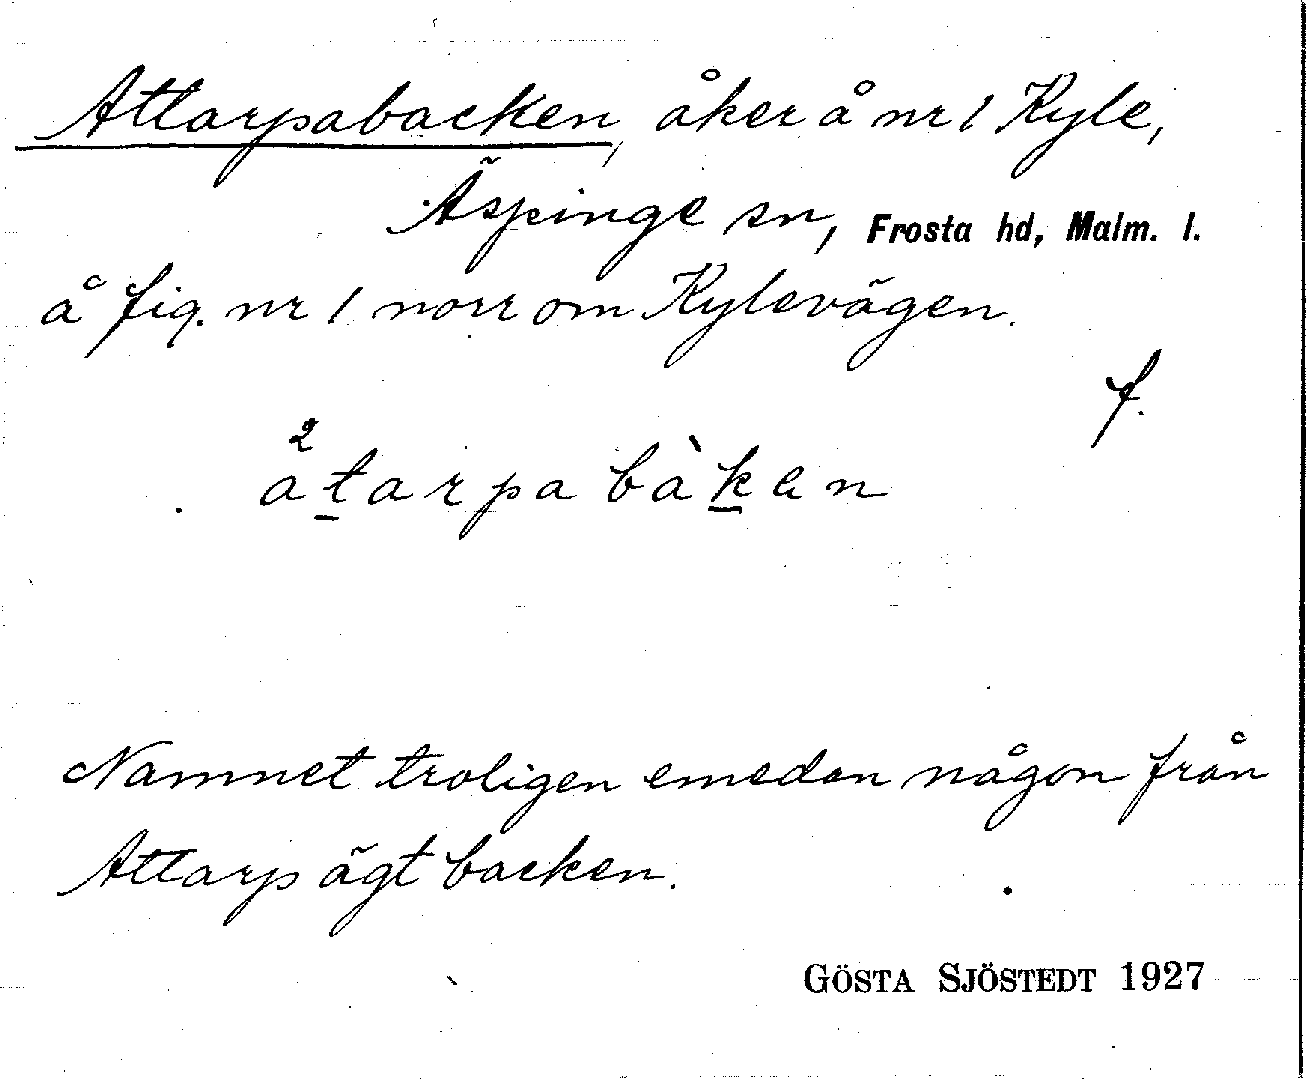 Attarpabacken, åker å nr 1 Kyle,
Äspinge sn, Frosta hd, Malm. l.
å fig. nr 1 norr om Kylevägen.
f.
²atarpabàkan
Namnet troligen emedan någon från
Attarp ägt backen.
GÖSTA SJÖSTEDT 1927